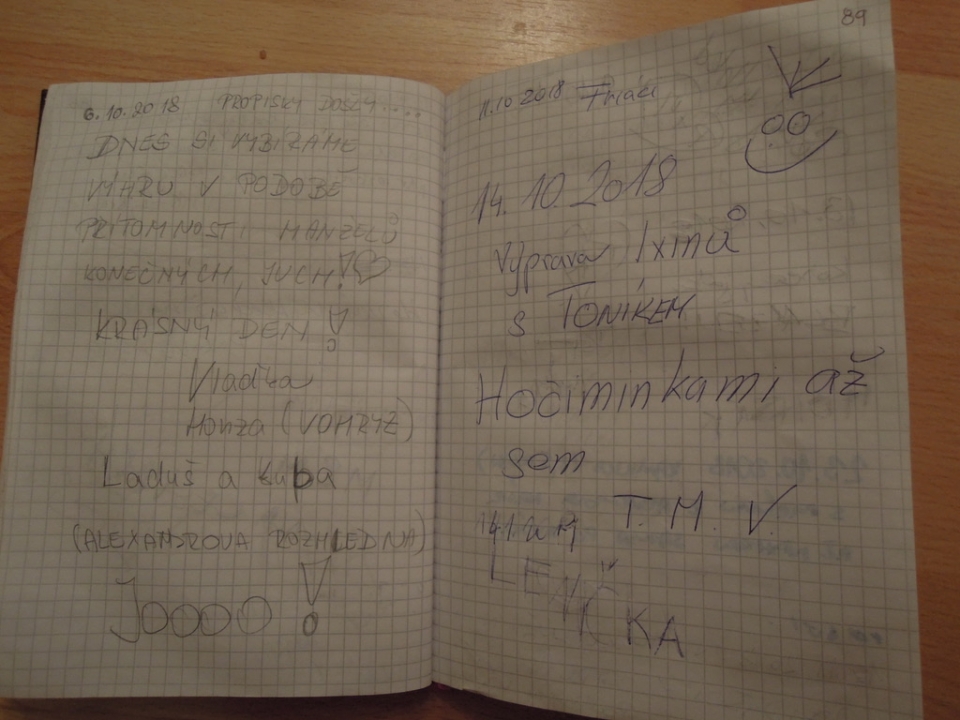 6.10.2018 PROPISKY DOŠLY....
DNES SI VYBÍRÁME
VÍARU V PODOBĚ
PŘÍTOMNOSTI MANŽELŮ
KONEČNÝCH, JUCH!♡
KRÁSNÝ DEN!
Vlaďka
Honza (VOHRYZ)
Laduš a Kuba
(ALEXANDROVA ROZHLEDNA)
JOOOO!
89
11.10 2018
14. 10. 2018
Výprava Ixinů
s TONÍKEM
Hočiminkami až
sem
T. M. V.
LENČKA